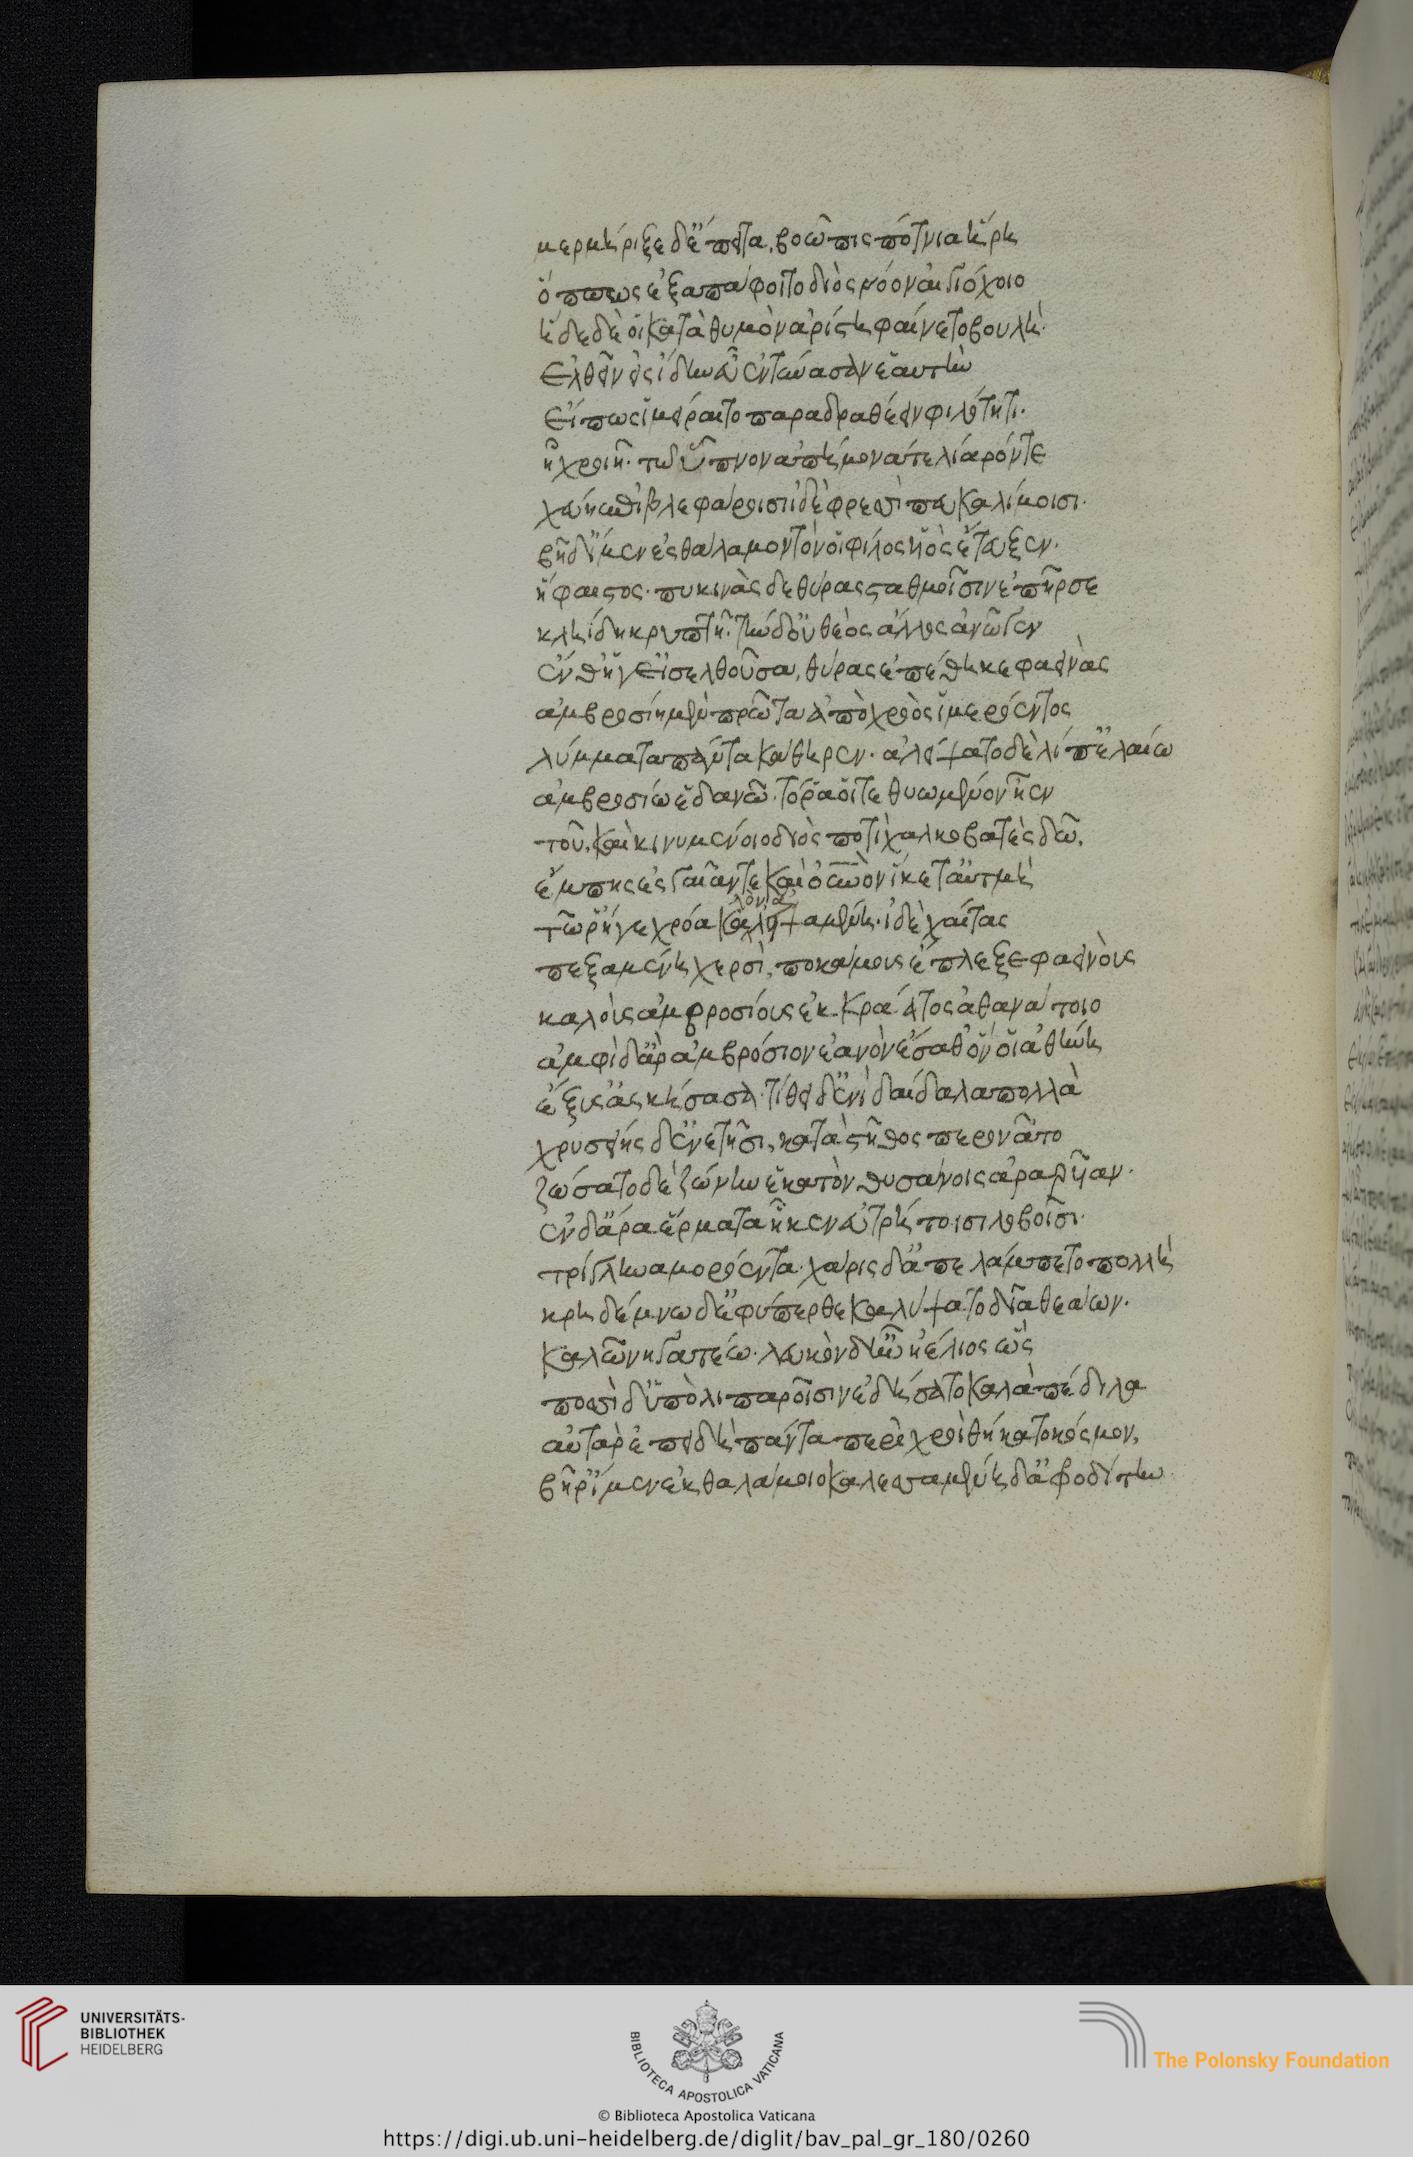 μερμήριξε δ' ἔπειτα, βοῶπις πότνια ἥρη
ὅππως ἐξαπάφοιτο διὸς νόον αἰγιόχοιο
ἥδε δὲ οἱ κατὰ θυμὸν ἀρίστη φαίνετο βουλή·
ἐλθεῖν εἰς ἴδην εὖ ἐντύνασαν ἓ αὐτὴν
εἴ πως ἱμείραιτο παραδραθέειν φιλότητι·
ᾗ χροιῇ· τῷ δ' ὕπνον ἀπήμονά τε λιαρόν τε
χεύῃ ἐπὶ βλεφάροισιν ἰδὲ φρεσὶ πευκαλίμοισι·
βῆ δ' ἴμεν ἐς θάλαμον τόν οἱ φίλος υἱὸς ἔτευξεν·
ἥφαιστος· πυκινὰς δὲ θύρας σταθμοῖσιν ἐπῆρσε
κληΐδι κρυπτῇ· τὴν δ' οὐ θεὸς ἄλλος ἀνῷγεν
ἔνθ' ἥγ' εἰσελθοῦσα, θύρας ἐπέθηκε φαεινὰς
ἀμβροσίῃ μὲν πρῶτα ἀπὸ χροὸς ἱμερόεντος
λύμματα πάντα κάθηρεν· ἀλείψατο δὲ λίπ' ἐλαίω
ἀμβροσίω ἑδανῶ· τό ῥά οἱ τεθυωμένον ἦεν
τοῦ, καὶ κινυμένοιο διὸς ποτὶ χαλκοβατὲς δῶ,
ἔμπης ἐς γαῖάν τε καὶ οὐρανὸν ἵκετ' ἀϋτμή
τῶ ῥ' ἥγε χρόα καλὸν ἀλειψαμένη· ἰδὲ χαίτας
πεξαμένη χερσὶ, πλοκάμους ἔπλεξε φαεινοὺς
καλοὺς ἀμβροσίους ἐκ κράατος ἀθανάτοιο
ἀμφὶ δ' ἄρ' ἀμβρόσιον ἑανὸν ἕσαθ' ὅν οἱ ἀθήνη
ἔξυσ' ἀσκήσασα· τίθει δ' ἐνὶ δαίδαλα πολλὰ
χρυσείης δ' ἐνετῇσι, κατὰ στῆθος περονᾶτο
ζώσατο δὲ ζώνην ἑκατὸν θυσάνοις ἀραρυῖαν·
ἐν δ' ἄρα ἕρματα ἧκεν ἐϋτρήτοισι λοβοῖσι·
τρίγληνα μορόεντα· χάρις δ' ἀπελάμπετο πολλή
κρηδέμνω δ' ἐφύπερθε καλύψατο δῖα θεάων·
καλῶ νηγατέω· λευκὸν δ' ἦν ἠέλιος ὥς
ποσὶ δ' ὑπὸ λιπαροῖσιν ἐδήσατο καλὰ πέδιλα
αὐτὰρ ἐπειδὴ πάντα περὶ χροῒ θήκατο κόσμον,
βῆ ῥ' ἴμεν ἐκ θαλάμοιο καλεσσαμένη δ' ἀφροδίτην
UNIVERSITÄTS-
BIBLIOTHEK
HEIDELBERG
BIBLIOTECA APOSTOLICA VATICANA
The Polonsky Foundation
© Biblioteca Apostolica Vaticana
https://digi.ub.uni-heidelberg.de/diglit/bav_pal_gr_180/0260